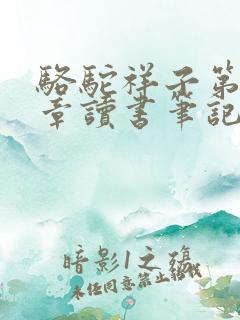 駱駝祥子第
章讀書筆記
暗影1之殤
未经同意禁止转载